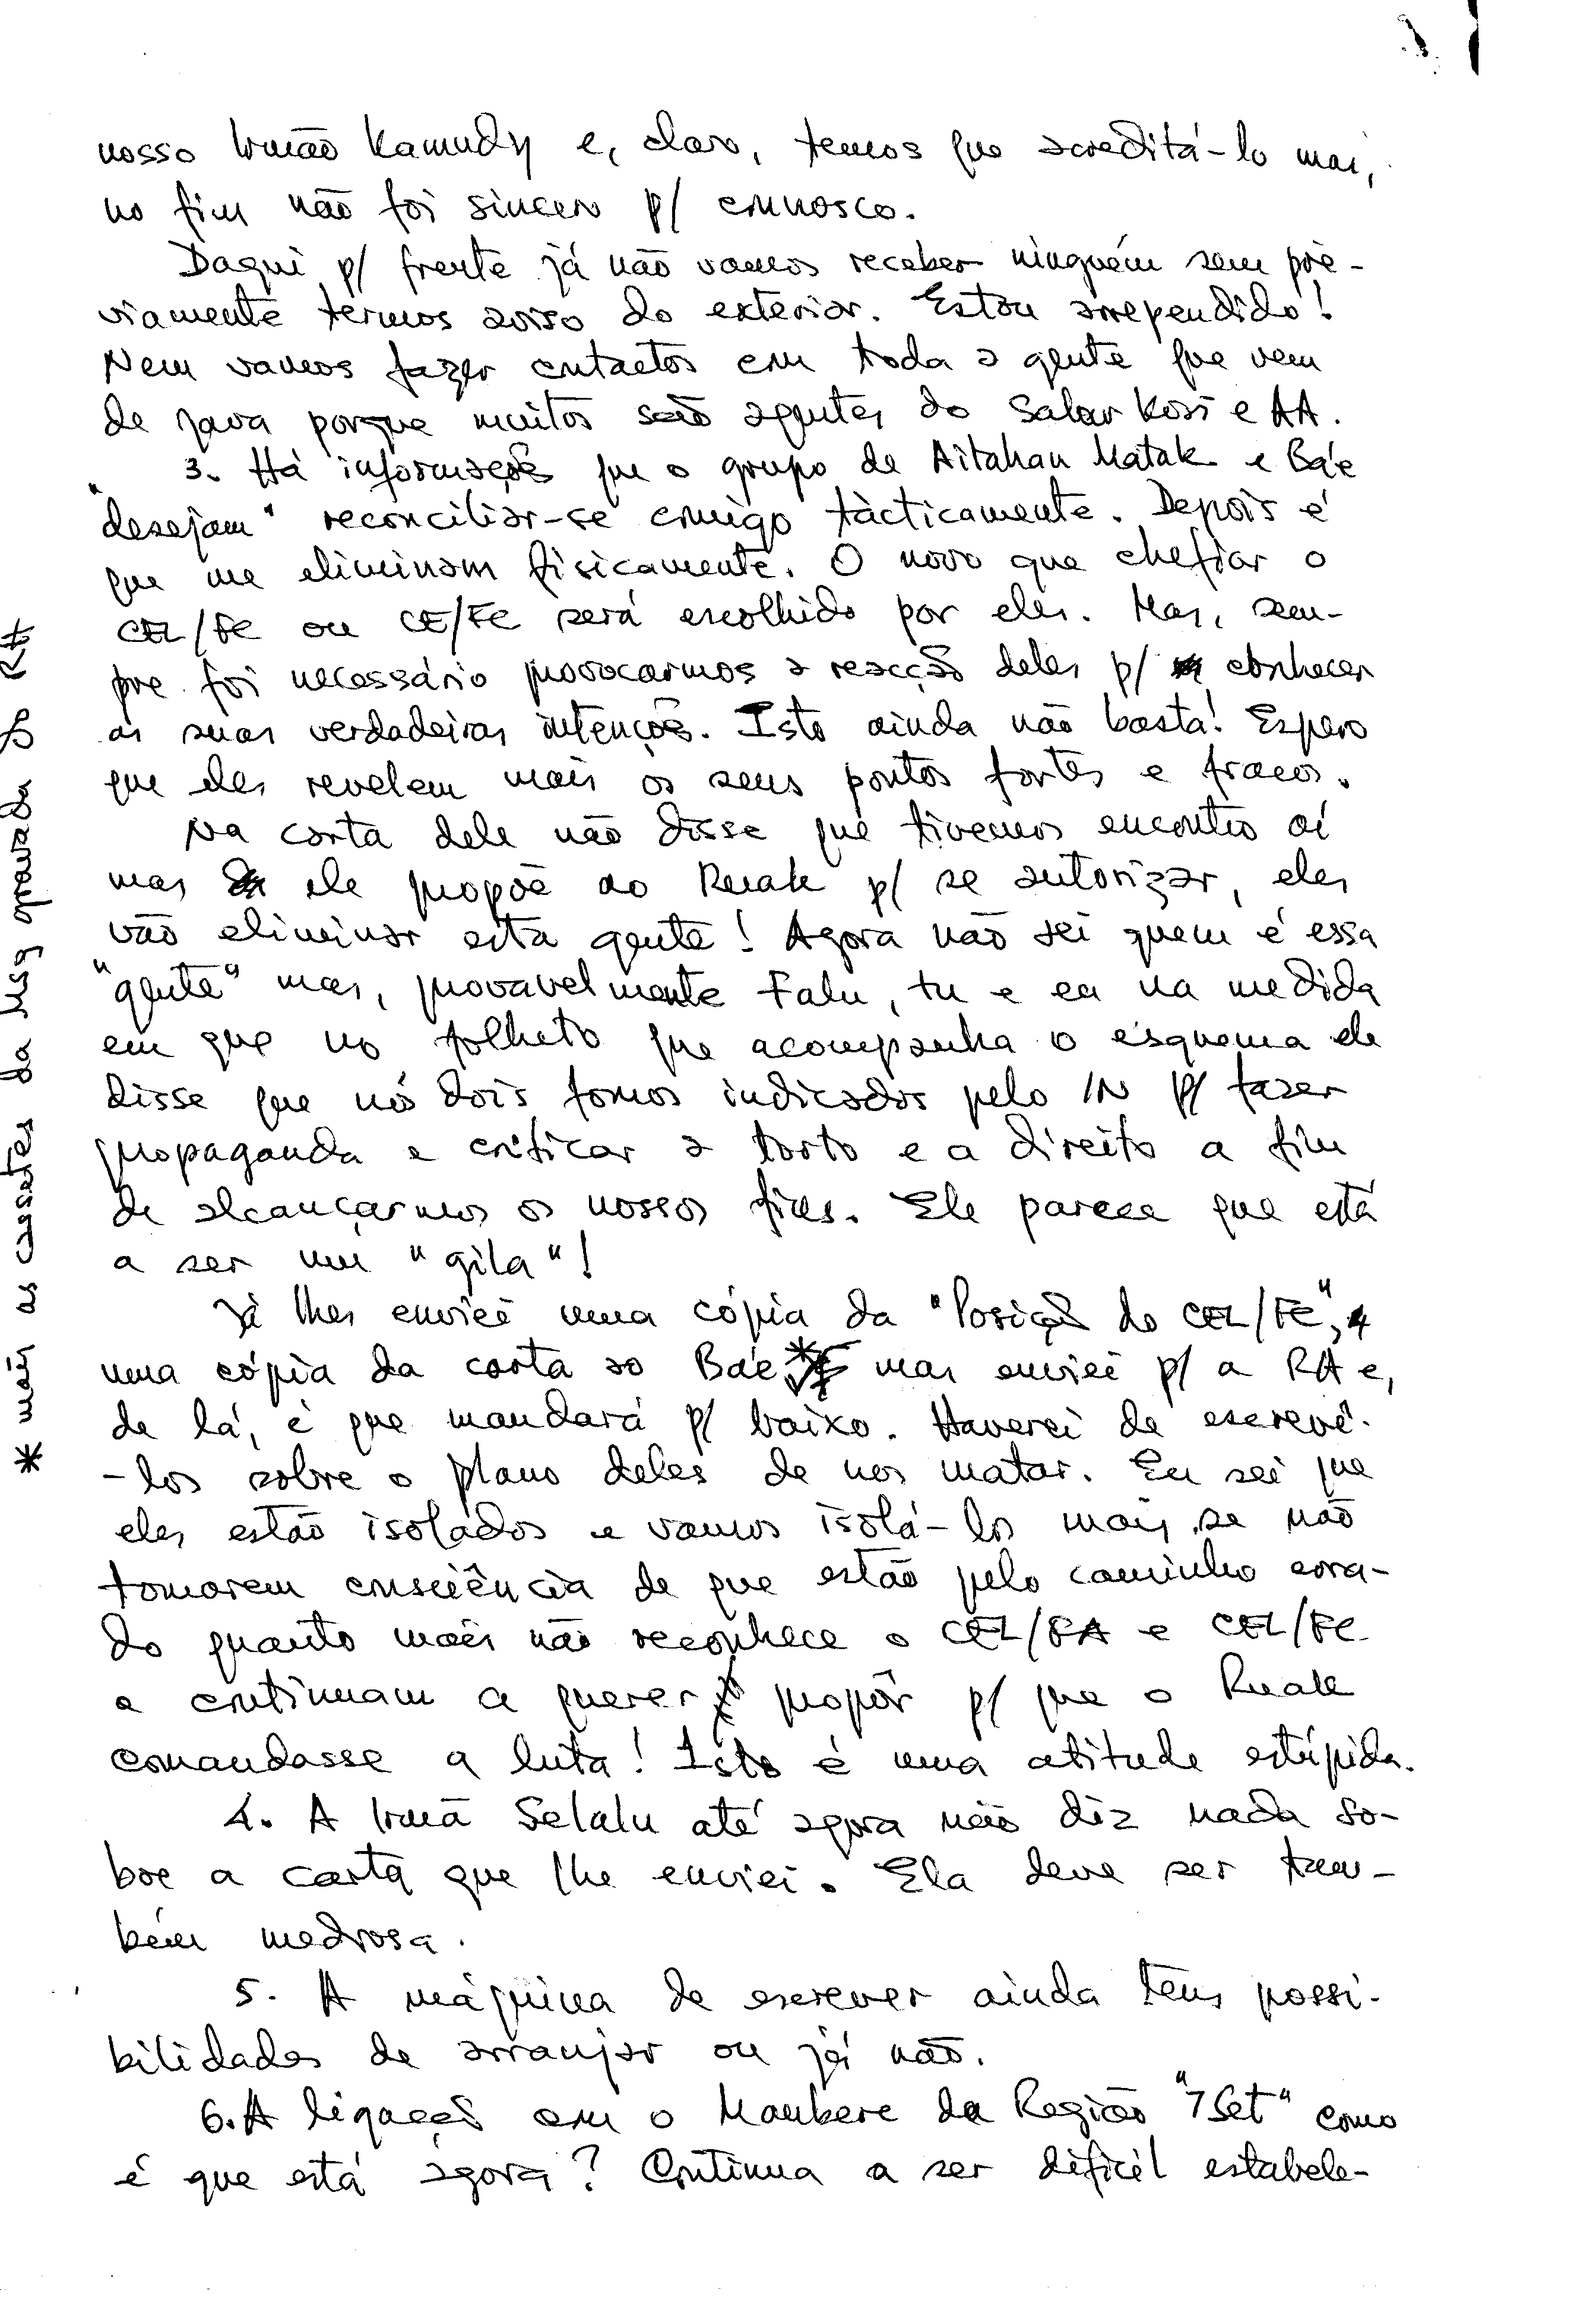 nosso Irmão Kamudy e, claro, temos que acreditá-lo mas,
no fim não foi sincero p/ connosco.
Daqui p/ frente já não vamos receber ninguém sem pré-
viamente termos aviso do exterior. Estou arrependido!
Nem vamos fazer contactos com toda a gente que vem
de Java porque muitos são agentes do Salar Kosi e AA.
3. Há informações que o grupo de Aitahan Matak e Bá'e
"desejam" reconciliar-se comigo tàcticamente. Depois é
que me eliminam fisicamente. O novo que chefiar o
CEL/FE ou CE/FE será escolhido por eles. Mas, sem-
pre foi necessário provocarmos a reacção deles p/ conhecer
as suas verdadeiras intenções. Isto ainda não basta! Espero
que eles revelem mais os seus pontos fortes e fracos.
Na carta dele não disse que tivemos encontro aí
mas ele propõe ao Ruak p/ se autorizar, eles
vão eliminar esta gente! Agora não sei quem é essa
"gente" mas, provavelmente Falu, tu e eu na medida
em que no folheto que acompanha o esquema ele
disse que nós dois fomos indicados pelo IN p/ fazer
propaganda e criticar a torto e a direito a fim
de alcançarmos os nossos fins. Ele parece que está
a ser um "gila"!
Já lhes enviei uma cópia da "Posição do CEL/FE",
uma cópia da carta ao Bá'e * mas enviei p/ a RA e,
de lá, é que mandará p/ baixo. Haverei de escrevê-
-los sobre o plano deles de nos matar. Eu sei que
eles estão isolados e vamos isolá-los mais se não
tomarem consciência de que estão pelo caminho erra-
do quanto mais não reconhece o CEL/FA e CEL/FE
e continuam a querer propôr p/ que o Ruak
comandasse a luta! Isto é uma atitude estúpida.
4. A Irmã Selalu até agora não diz nada so-
bre a carta que lhe enviei. Ela deve ser tam-
bém medrosa.
5. A máquina de escrever ainda tens possi-
bilidades de arranjar ou já não.
6. A ligação com o Maubere da Região "7 Set" como
é que está agora? Continua a ser difícil estabele-
* mais as cassetes da Msg gravada p/ RA